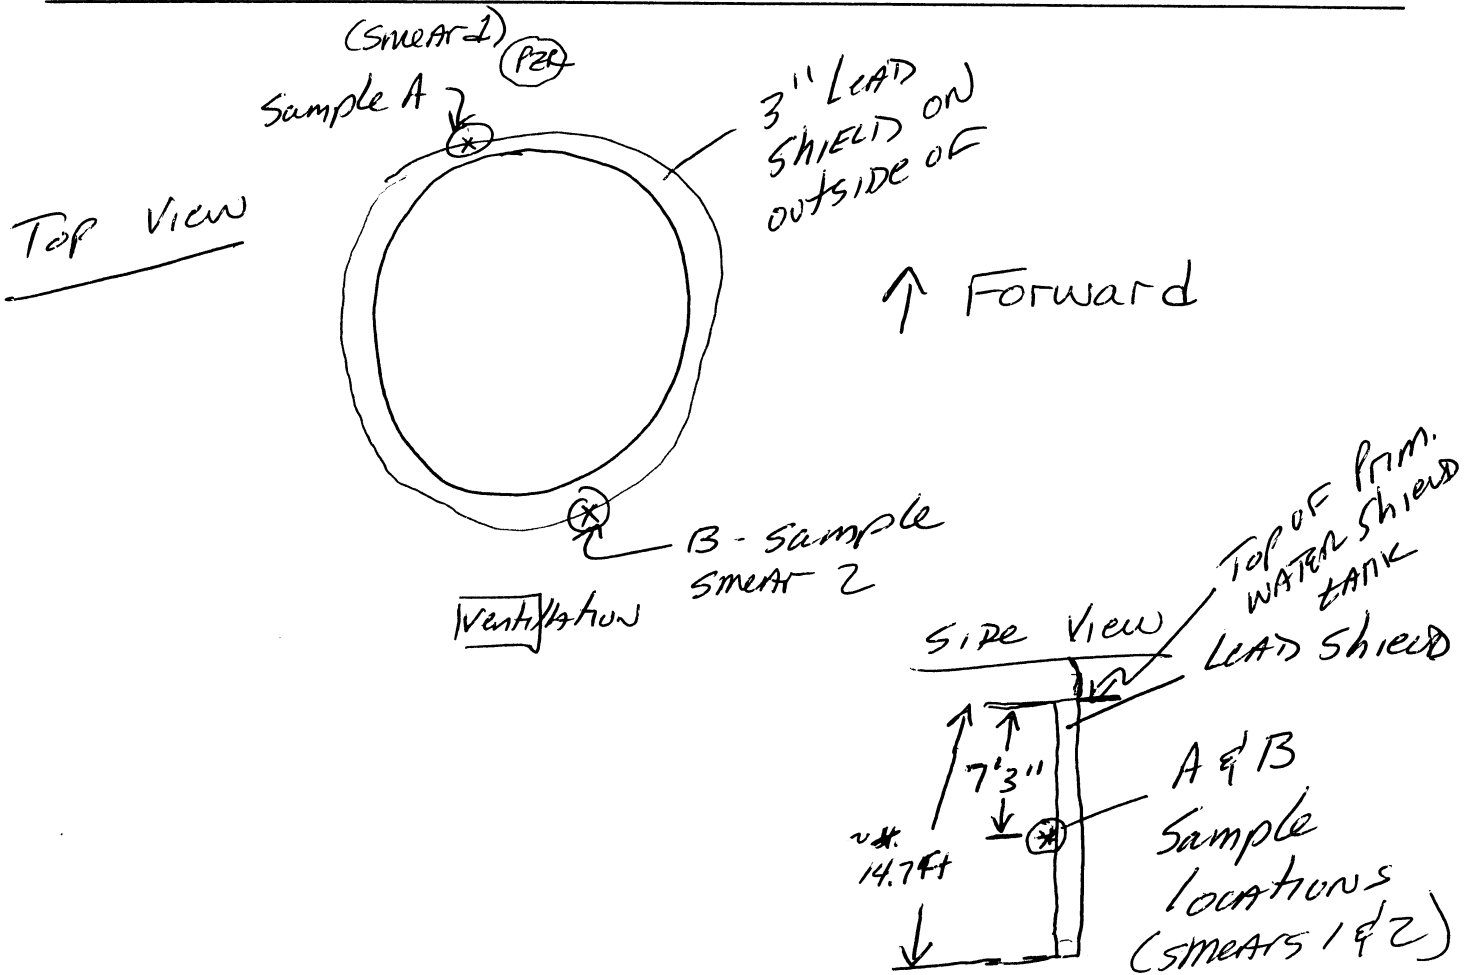 (Smear 1)
PZR
Sample A
3" LEAD
SHIELD ON
OUTSIDE OF
Top View
↑ Forward
B - Sample
Smear 2
Ventilation
Top OF Prim.
WATER Shield
tANK
Side View
LEAD Shield
7'3"
A & B
Sample
locations
(smears 1 & 2)
14.7 Ft